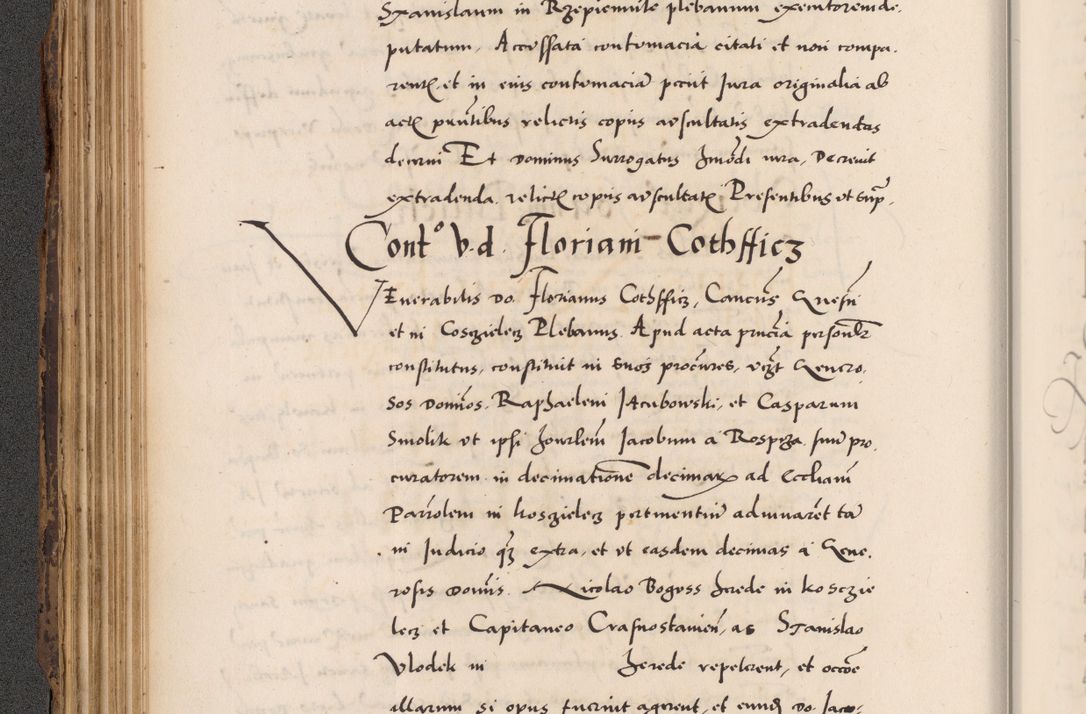 Stanislaum in Rzepiennile plebanum executorem de,
putatum, Accussata contumacia citati et non compa,
rentis et in eius contumaciã petiit Jura originalia ab
actis pñtibus relictis copiis auscultatis extradendas
decerni Et Dominus Surrogatus Jmõdi iura, Decrevit
extradenda relictis copiis auscultatis Presentibus ut supra,
Contº V. d. Floriani Cothfficz
Venerabilis Do. Florianus Cothfficz, Cancus
et in Cosczielecz Plebanus. Apud acta pñcia personlr
constitutus, constituit in suos procures, Genero,
sos Domños, Raphaelem Jacubowski, et Casparum
Smolik ut ipsi Jacobum a Rospza suum pro,
curatorem in decimatione decimarum ad Eccliam
Parrolem in kosczielecz pertinentiu adiuvaret tã
in Judicio qz extra, et ut easdem decimas a Gene,
rosis Domñis. Nicolao Bogoss herede in kosczie
lecz et Capitaneo Crasnostauien, ac Stanislao
Vlodek in herede repeterent, et occõe
illarum si opus fuerint agerent, et eund Do. Jaco,